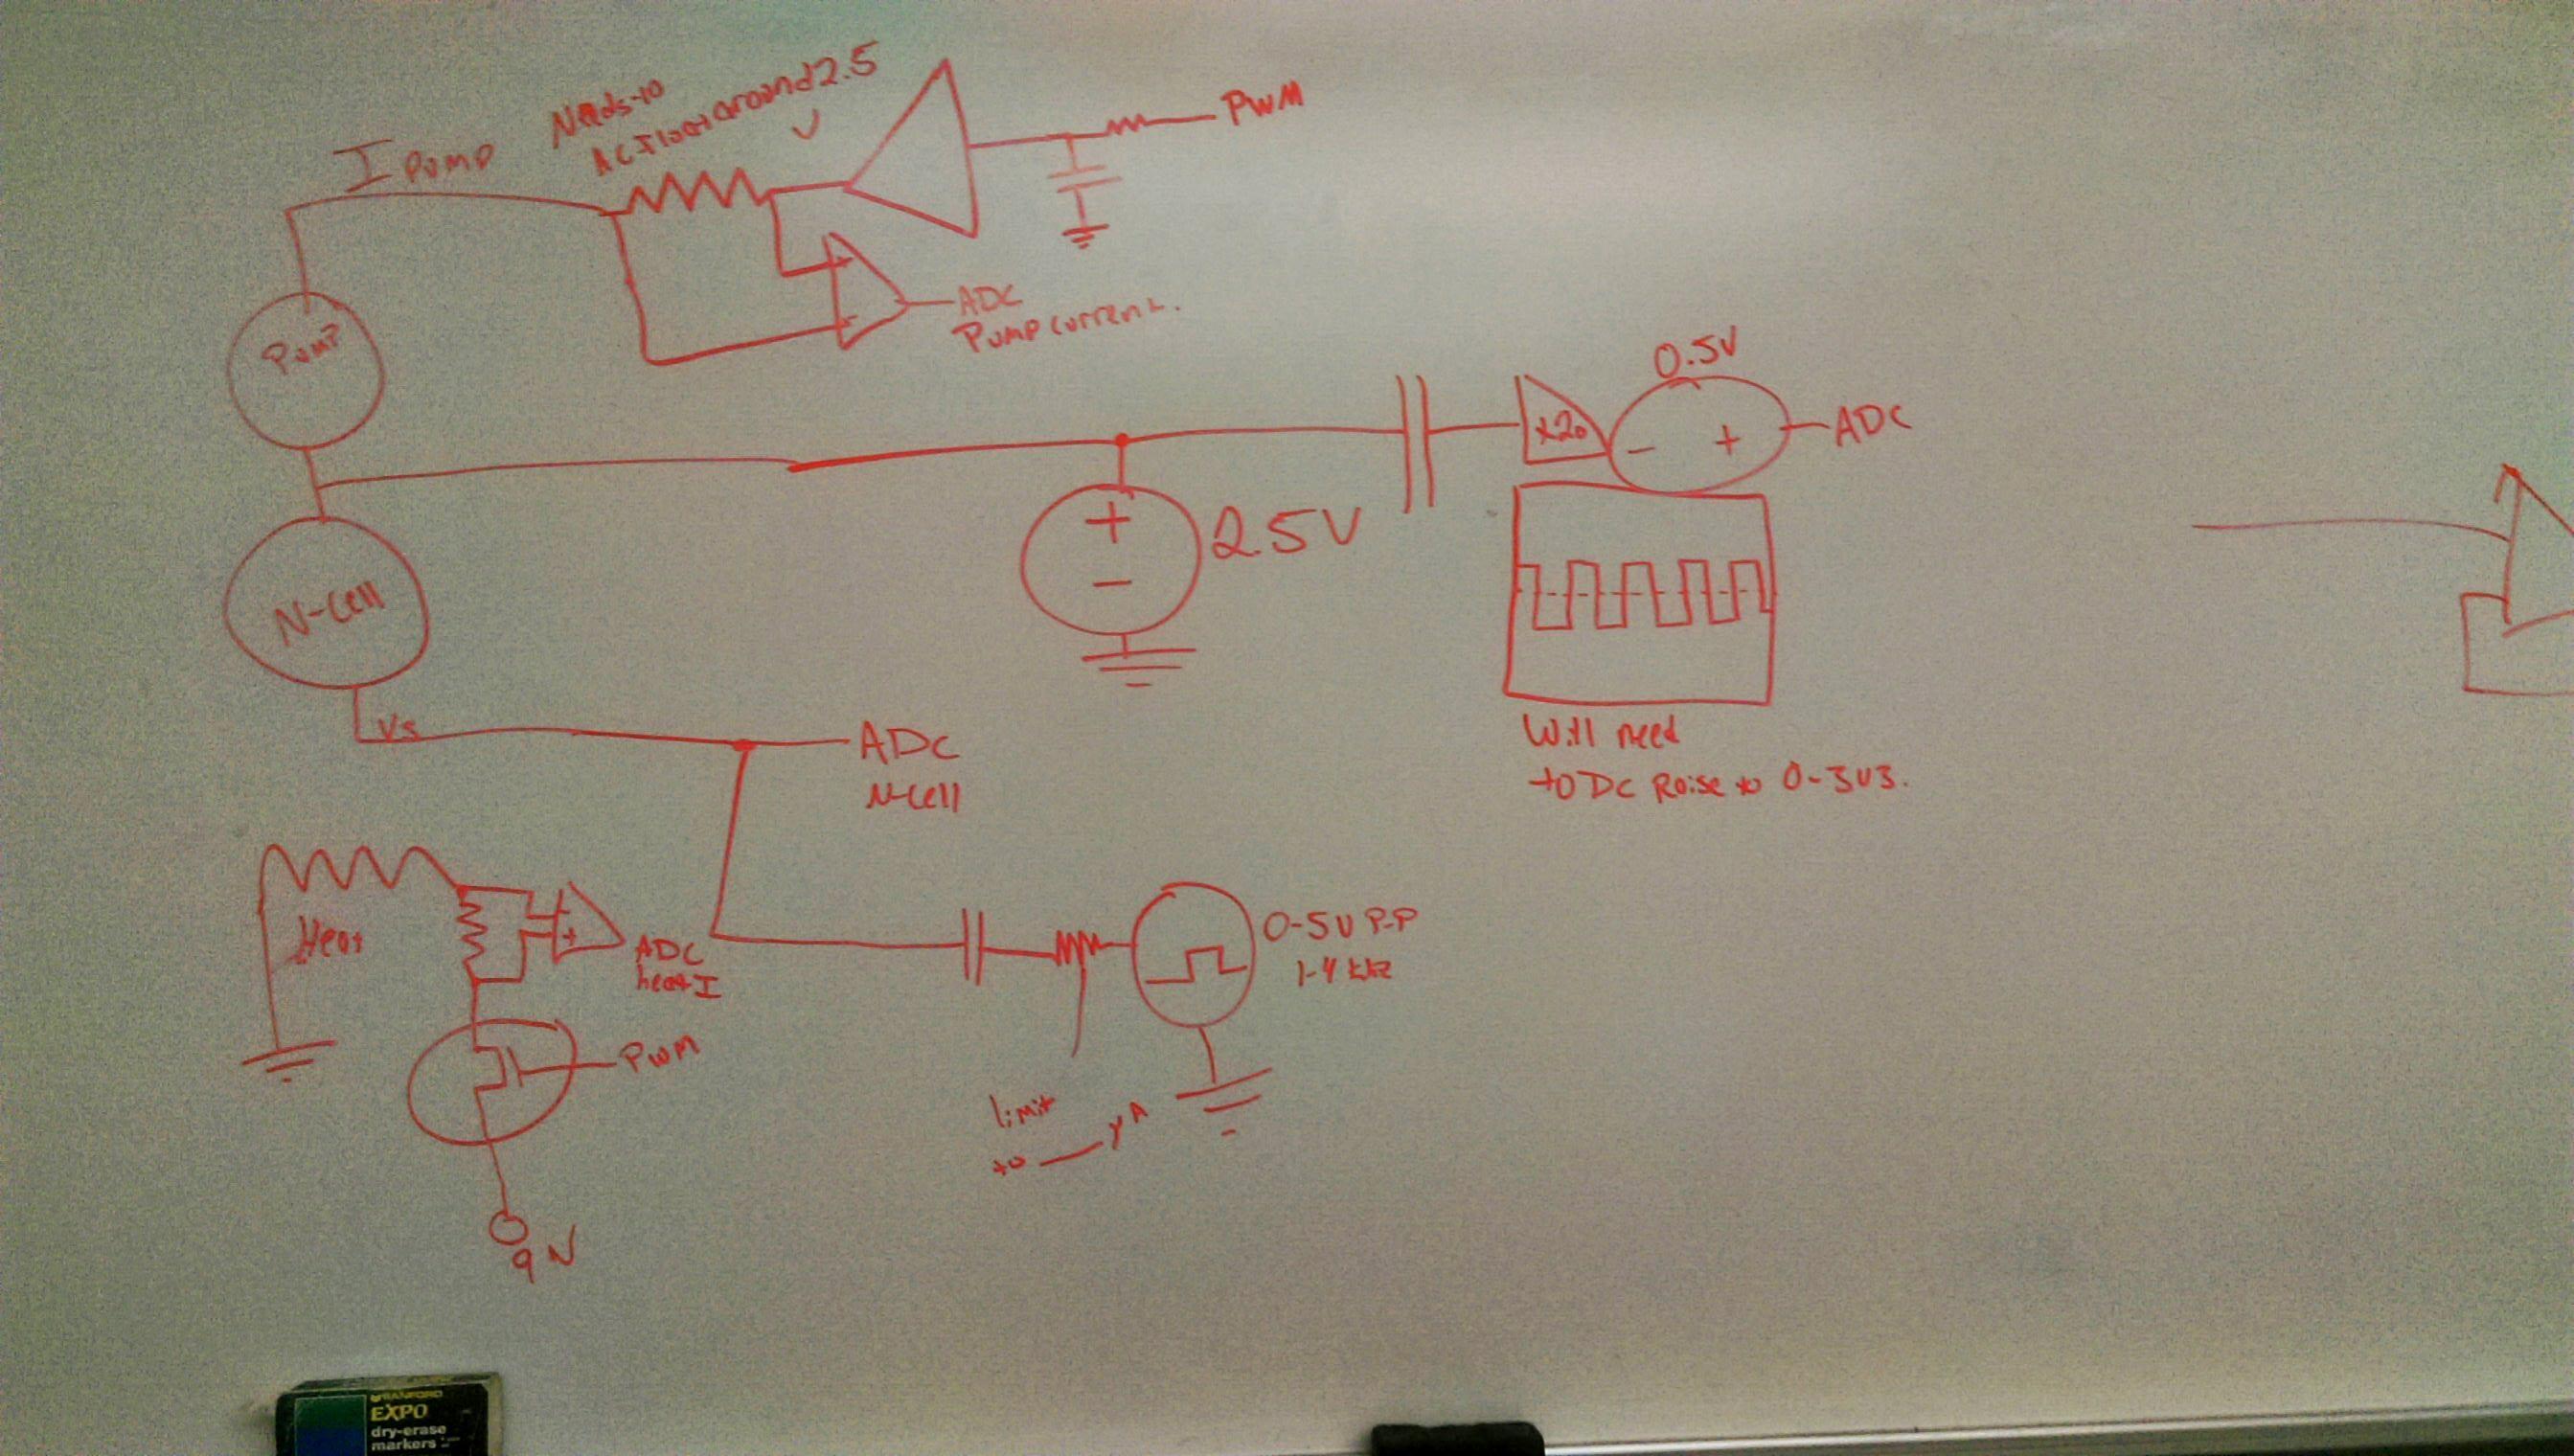 I Pump
Needs to
around 2.5
V
PWM
Pump
ADC
Pump current.
0.5V
x20
- +
ADC
+
-
2.5V
N-Cell
Will need
to DC Raise to 0-3V3.
Vs
ADC
N-Cell
Heat
ADC
heat I
0-5V P-P
1-4 kHz
PWM
limit
to ___ yA
9V
SANFORD
EXPO
dry-erase
markers